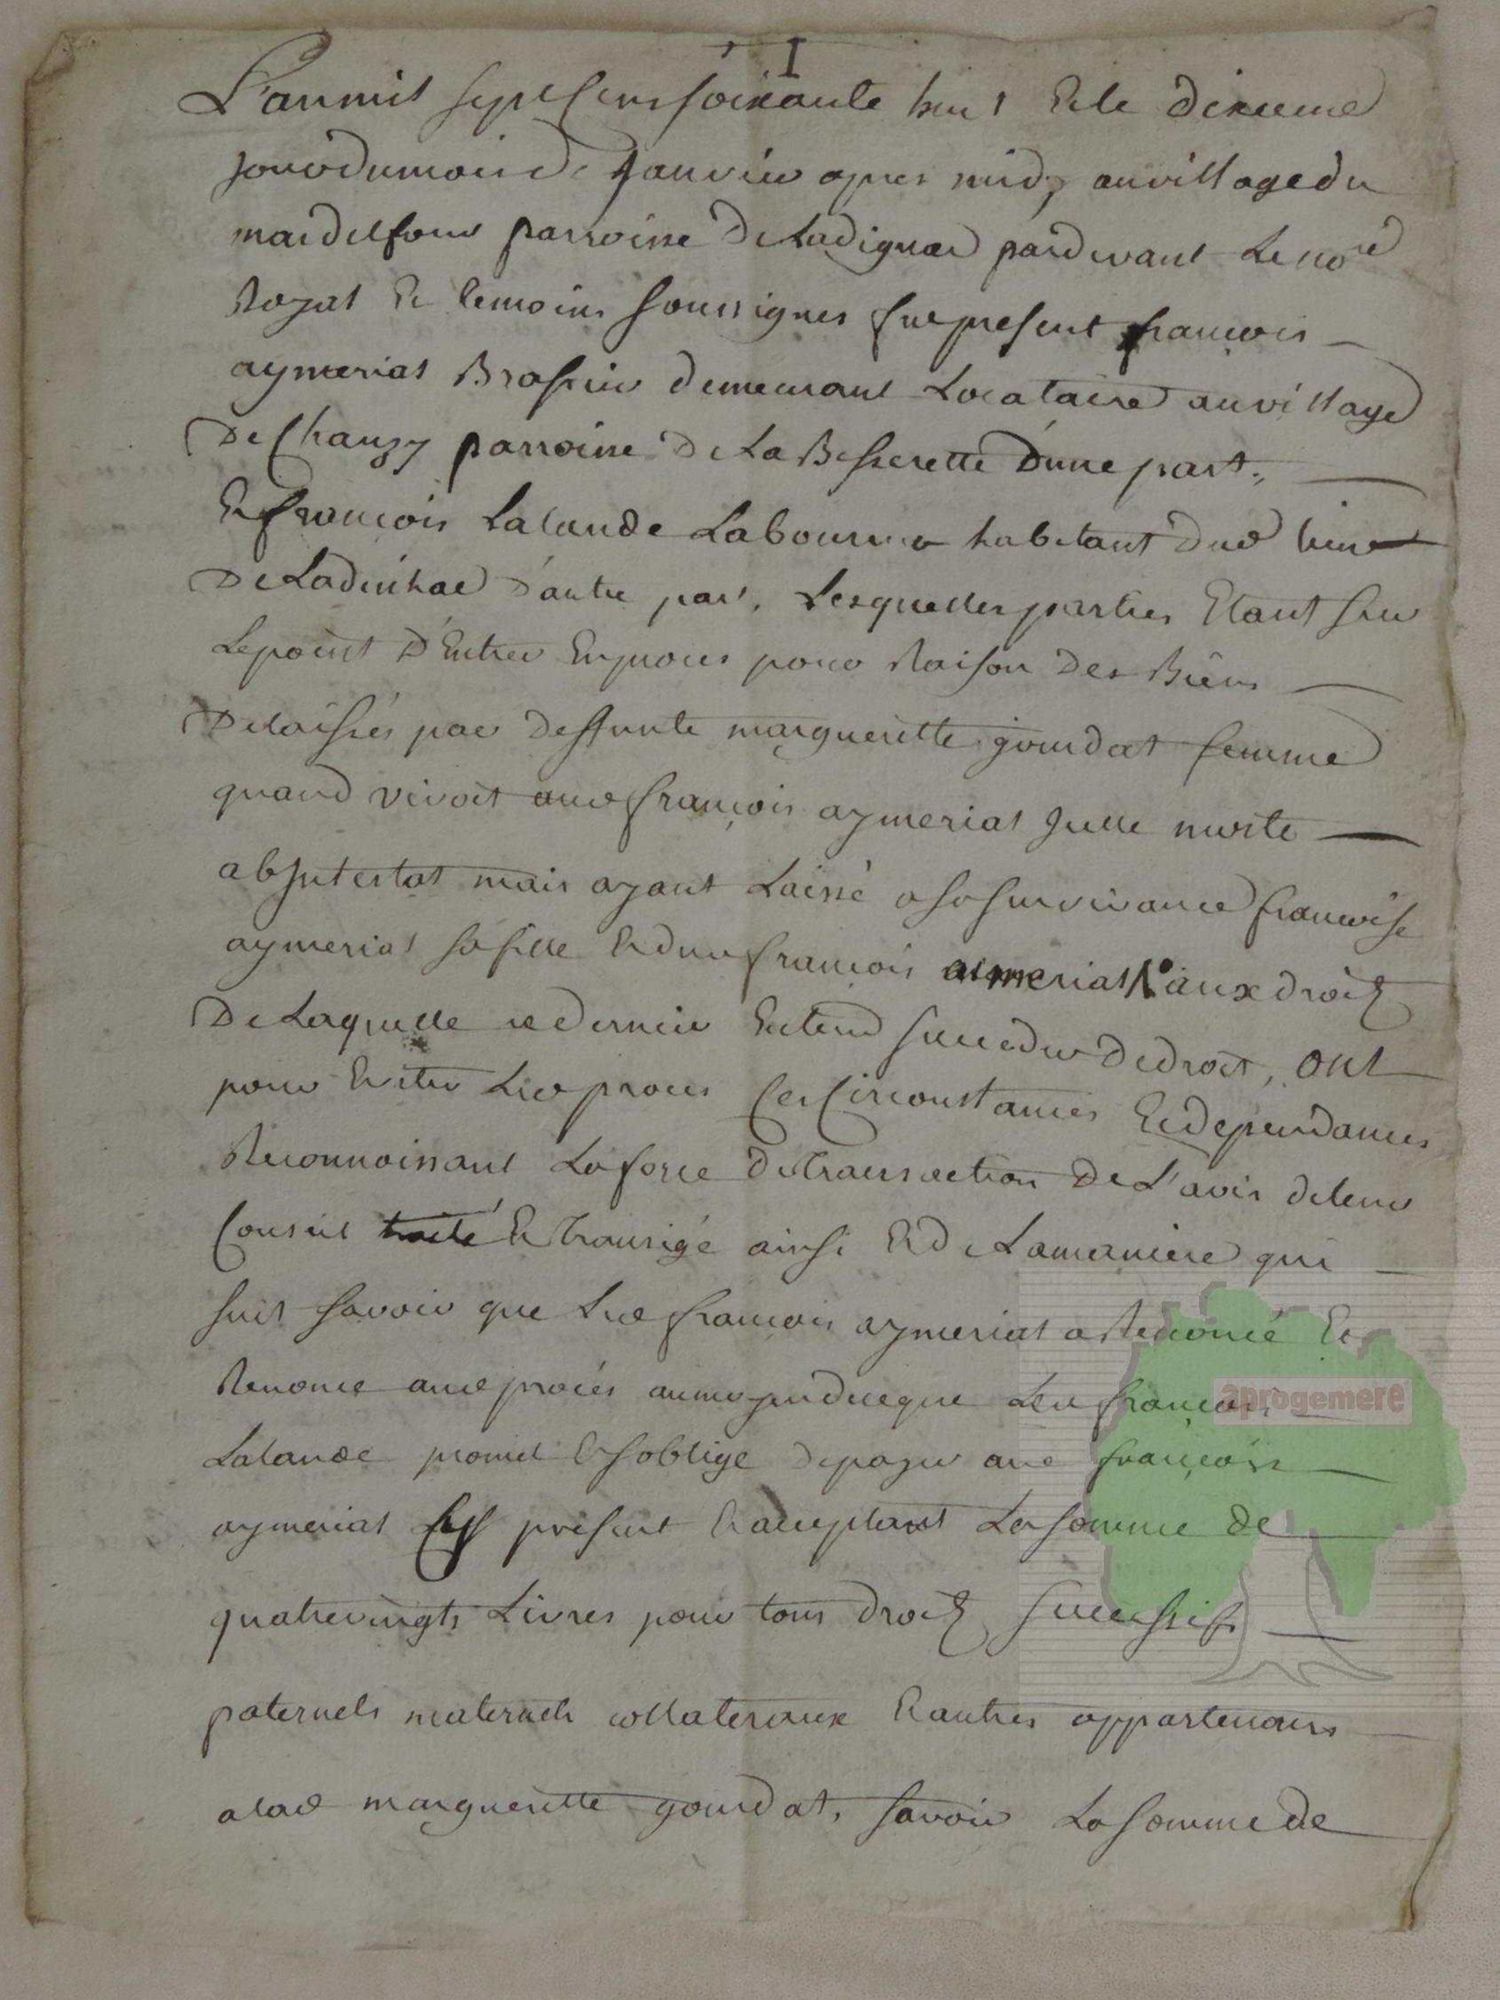 I
L'an mil sept cens soixante huit & le dixieme
jour du mois de Janvier apres midy au village du
mas delfour parroisse de Ladignac pardevant le nore
Royal & temoins soussignes fut present françois
aymerial Brassier demeurant Locataire au village
De Chanzy parroisse de La Besserette d'une part,
& françois Lalande Laboureur habitant dud lieu
De Ladinhac d'autre part, Lesquelles parties Etant sur
Le point d'Entrer En proces pour Raison des Biens
Delaissés par deffunte margueritte gourdat femme
quand vivoit aud françois aymerial Jcelle morte
abJntestat mais ayant Laissé a sa survivance françoise
aymerial sa fille & dud françois aymerial aux droits
De Laquelle ce dernier Entend succeder de droit, ont
pour Eviter Led proces ses Circonstances & dependances
Reconnoissant La force de transaction de L'avis de leur
Conseil traité & transigé ainsi & de La maniere qui
suit savoir que Led françois aymerial a Renoncé &
Renonce aud procés au moyen de ce que Led françois
Lalande promet & s'oblige de payer aud françois
aymerial present & acceptant La somme de
quatrevingts Livres pour tous droits successifs
paternels maternels collateraux & autres appartenans
a lad margueritte gourdat, savoir La somme de
aprogemere